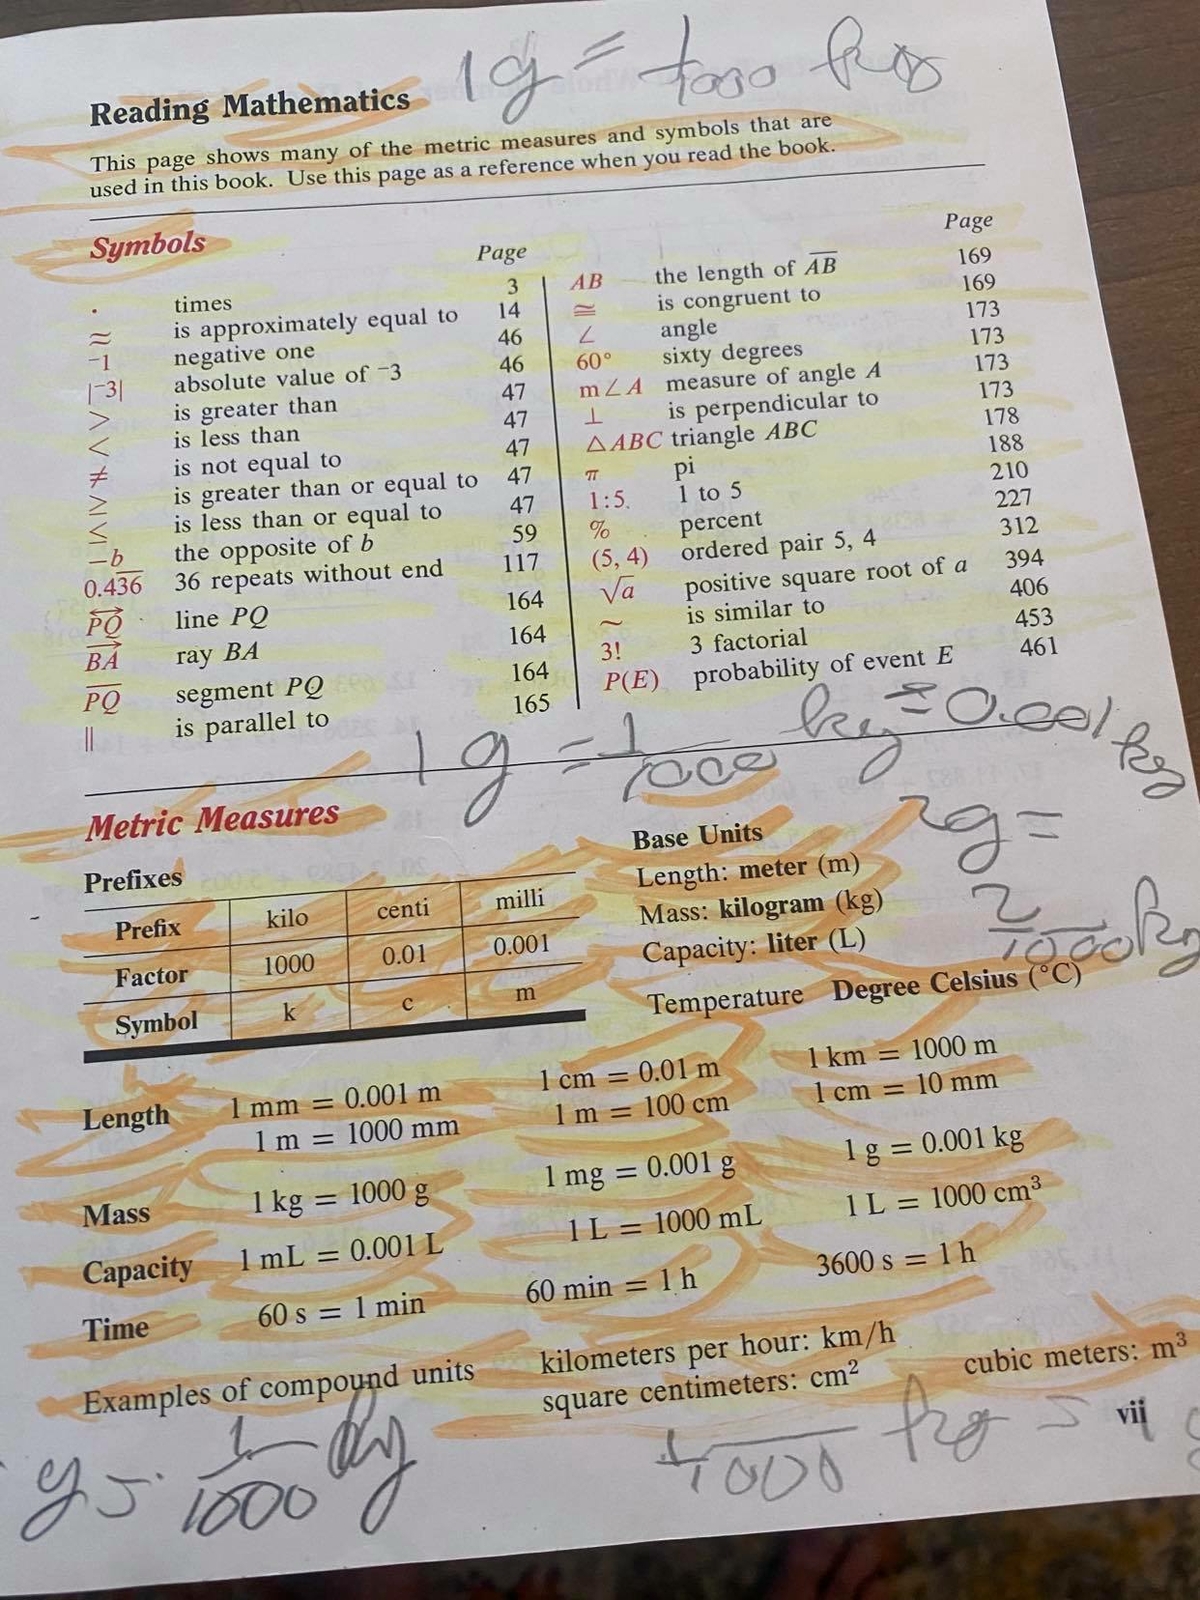 1g = 1/1000 kg
Reading Mathematics
This page shows many of the metric measures and symbols that are
used in this book. Use this page as a reference when you read the book.
Symbols
Page
· times 3
≈ is approximately equal to 14
⁻1 negative one 46
|⁻3| absolute value of ⁻3 46
> is greater than 47
< is less than 47
≠ is not equal to 47
≥ is greater than or equal to 47
≤ is less than or equal to 47
−b the opposite of b 59
0.43̅6̅ 36 repeats without end 117
P͡Q line PQ 164
BA ray BA 164
PQ segment PQ 164
|| is parallel to 165
Page
AB the length of A̅B̅ 169
≅ is congruent to 169
∠ angle 173
60° sixty degrees 173
m∠A measure of angle A 173
⊥ is perpendicular to 173
△ABC triangle ABC 178
π pi 188
1:5. 1 to 5 210
% percent 227
(5, 4) ordered pair 5, 4 312
√a positive square root of a 394
~ is similar to 406
3! 3 factorial 453
P(E) probability of event E 461
1g = 1/1000 kg = 0.001 kg
Metric Measures
2g =
2/1000 kg
Prefixes
Prefix kilo centi milli
Factor 1000 0.01 0.001
Symbol k c m
Base Units
Length: meter (m)
Mass: kilogram (kg)
Capacity: liter (L)
Temperature Degree Celsius (°C)
Length 1 mm = 0.001 m 1 cm = 0.01 m 1 km = 1000 m
1 m = 1000 mm 1 m = 100 cm 1 cm = 10 mm
Mass 1 kg = 1000 g 1 mg = 0.001 g 1 g = 0.001 kg
Capacity 1 mL = 0.001 L 1 L = 1000 mL 1 L = 1000 cm³
Time 60 s = 1 min 60 min = 1 h 3600 s = 1 h
Examples of compound units kilometers per hour: km/h
square centimeters: cm² cubic meters: m³
vii
g = 1/1000 kg
1/1000 kg =